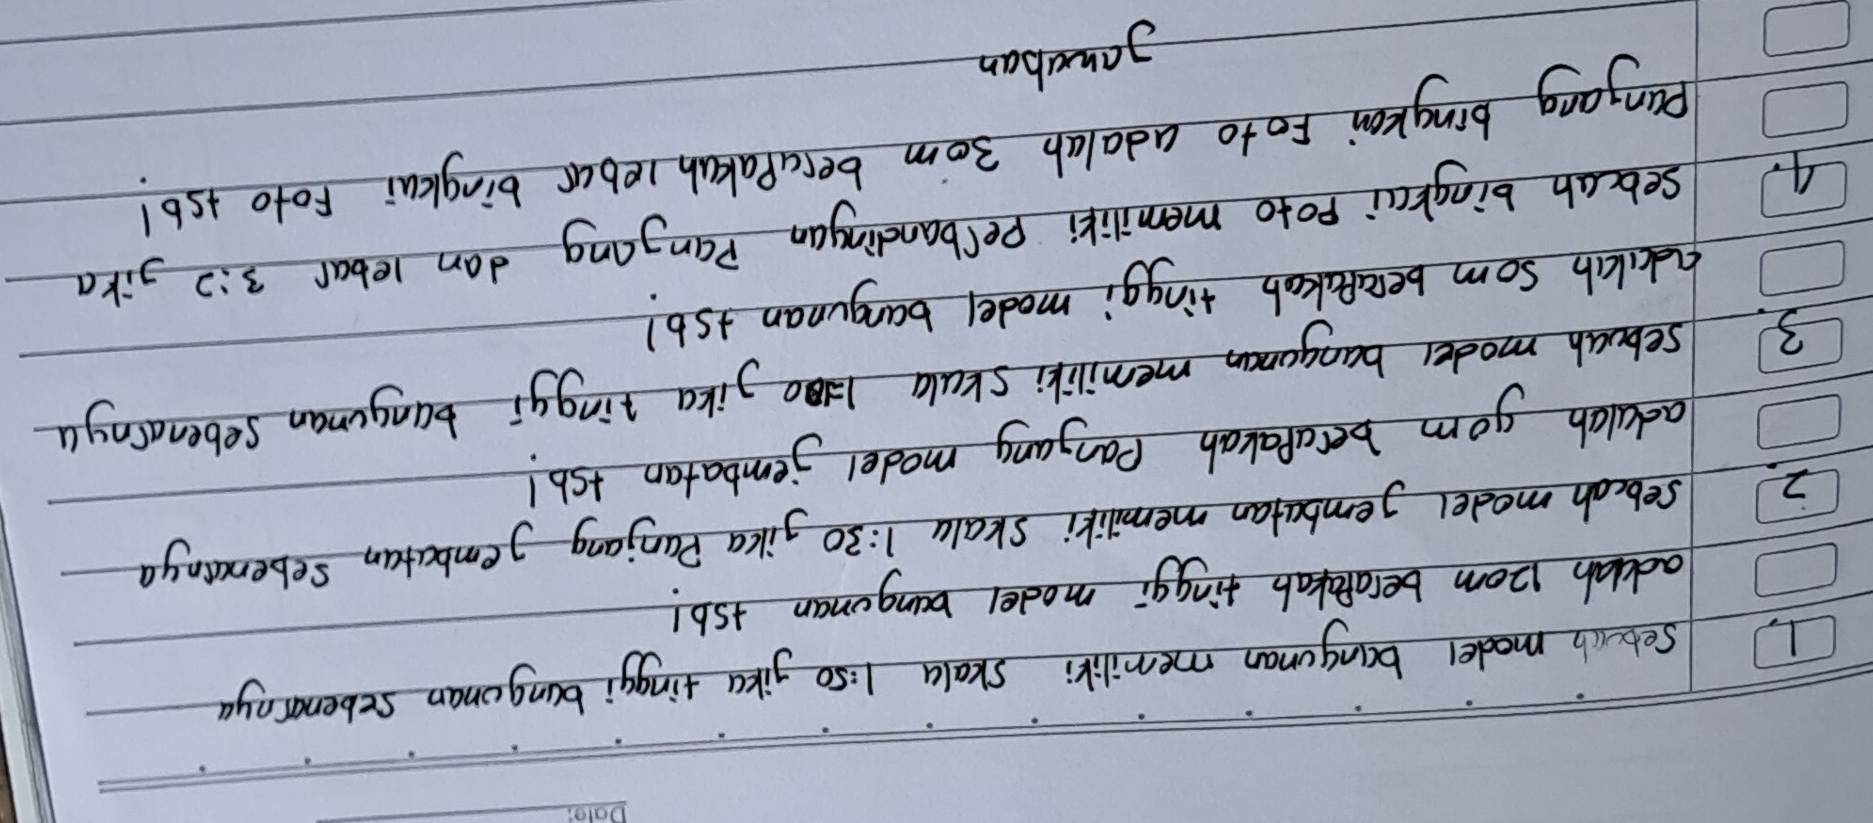 Date:
1. Sebuah model bangunan memiliki skala 1:50 jika tinggi bangunan sebenarnya
adalah 120m berapakah tinggi model bangunan tsb!
2. Sebuah model jembatan memiliki skala 1:30 jika Panjang jembatan sebenarnya
adalah 90m berapakah Panjang model jembatan tsb!
3. Sebuah model bangunan memiliki skala jika tinggi bangunan sebenarnya
adalah 50m berapakah tinggi model bangunan tsb!
4. Sebuah bingkai Poto memiliki Perbandingan Panjang dan lebar 3:2 jika
Panjang bingkai Foto adalah 30m berapakah lebar bingkai Foto tsb!
Jawaban